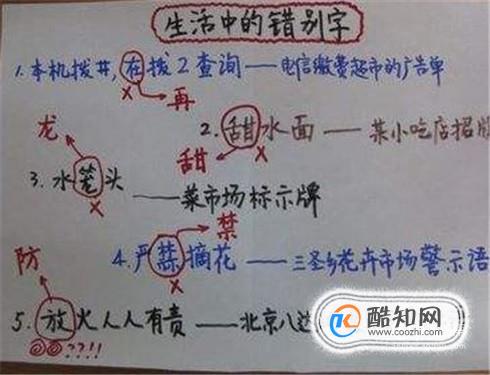 生活中的错别字
1.本机拨井,在拨2查询——电信缴费超市的广告单
× 再
龙
2.甜水面——某小吃店招
甜 ×
3.水笼头——菜市场标示牌
×
禁
防
4.严禁摘花——三圣乡花卉市场警示语
×
5.放火人人有责——北京八达
??!!
酷知网